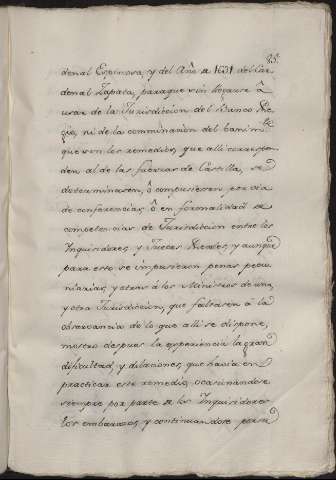 85.
denal Espinosa, y del Año de 1631 del Car
denal Zapata, para que sin llegarse â
usar de la Jurisdiccion del Banco Re
gio, ni de la comminacion del banimto
que son los remedios, que alli correspon
den al de las fuerzas de Castilla, se
determinasen, ô compusiesen por via
de conferencias, ô en formalidad de
competencias de Jurisdiccion entre los
Inquisidores, y Jueces Reales; y aunque
para esto se impusieron penas pecu
niarias, y otras à los Ministros de una,
y otra Jurisdiccion, que faltasen â la
observancia de lo que alli se dispone,
mostrò despues la experiencia la gran
dificultad, y dilaciones, que havia en
practicar este remedio, ocasionandose
siempre por parte de los Inquisidores
los embarazos, y continuandose por su